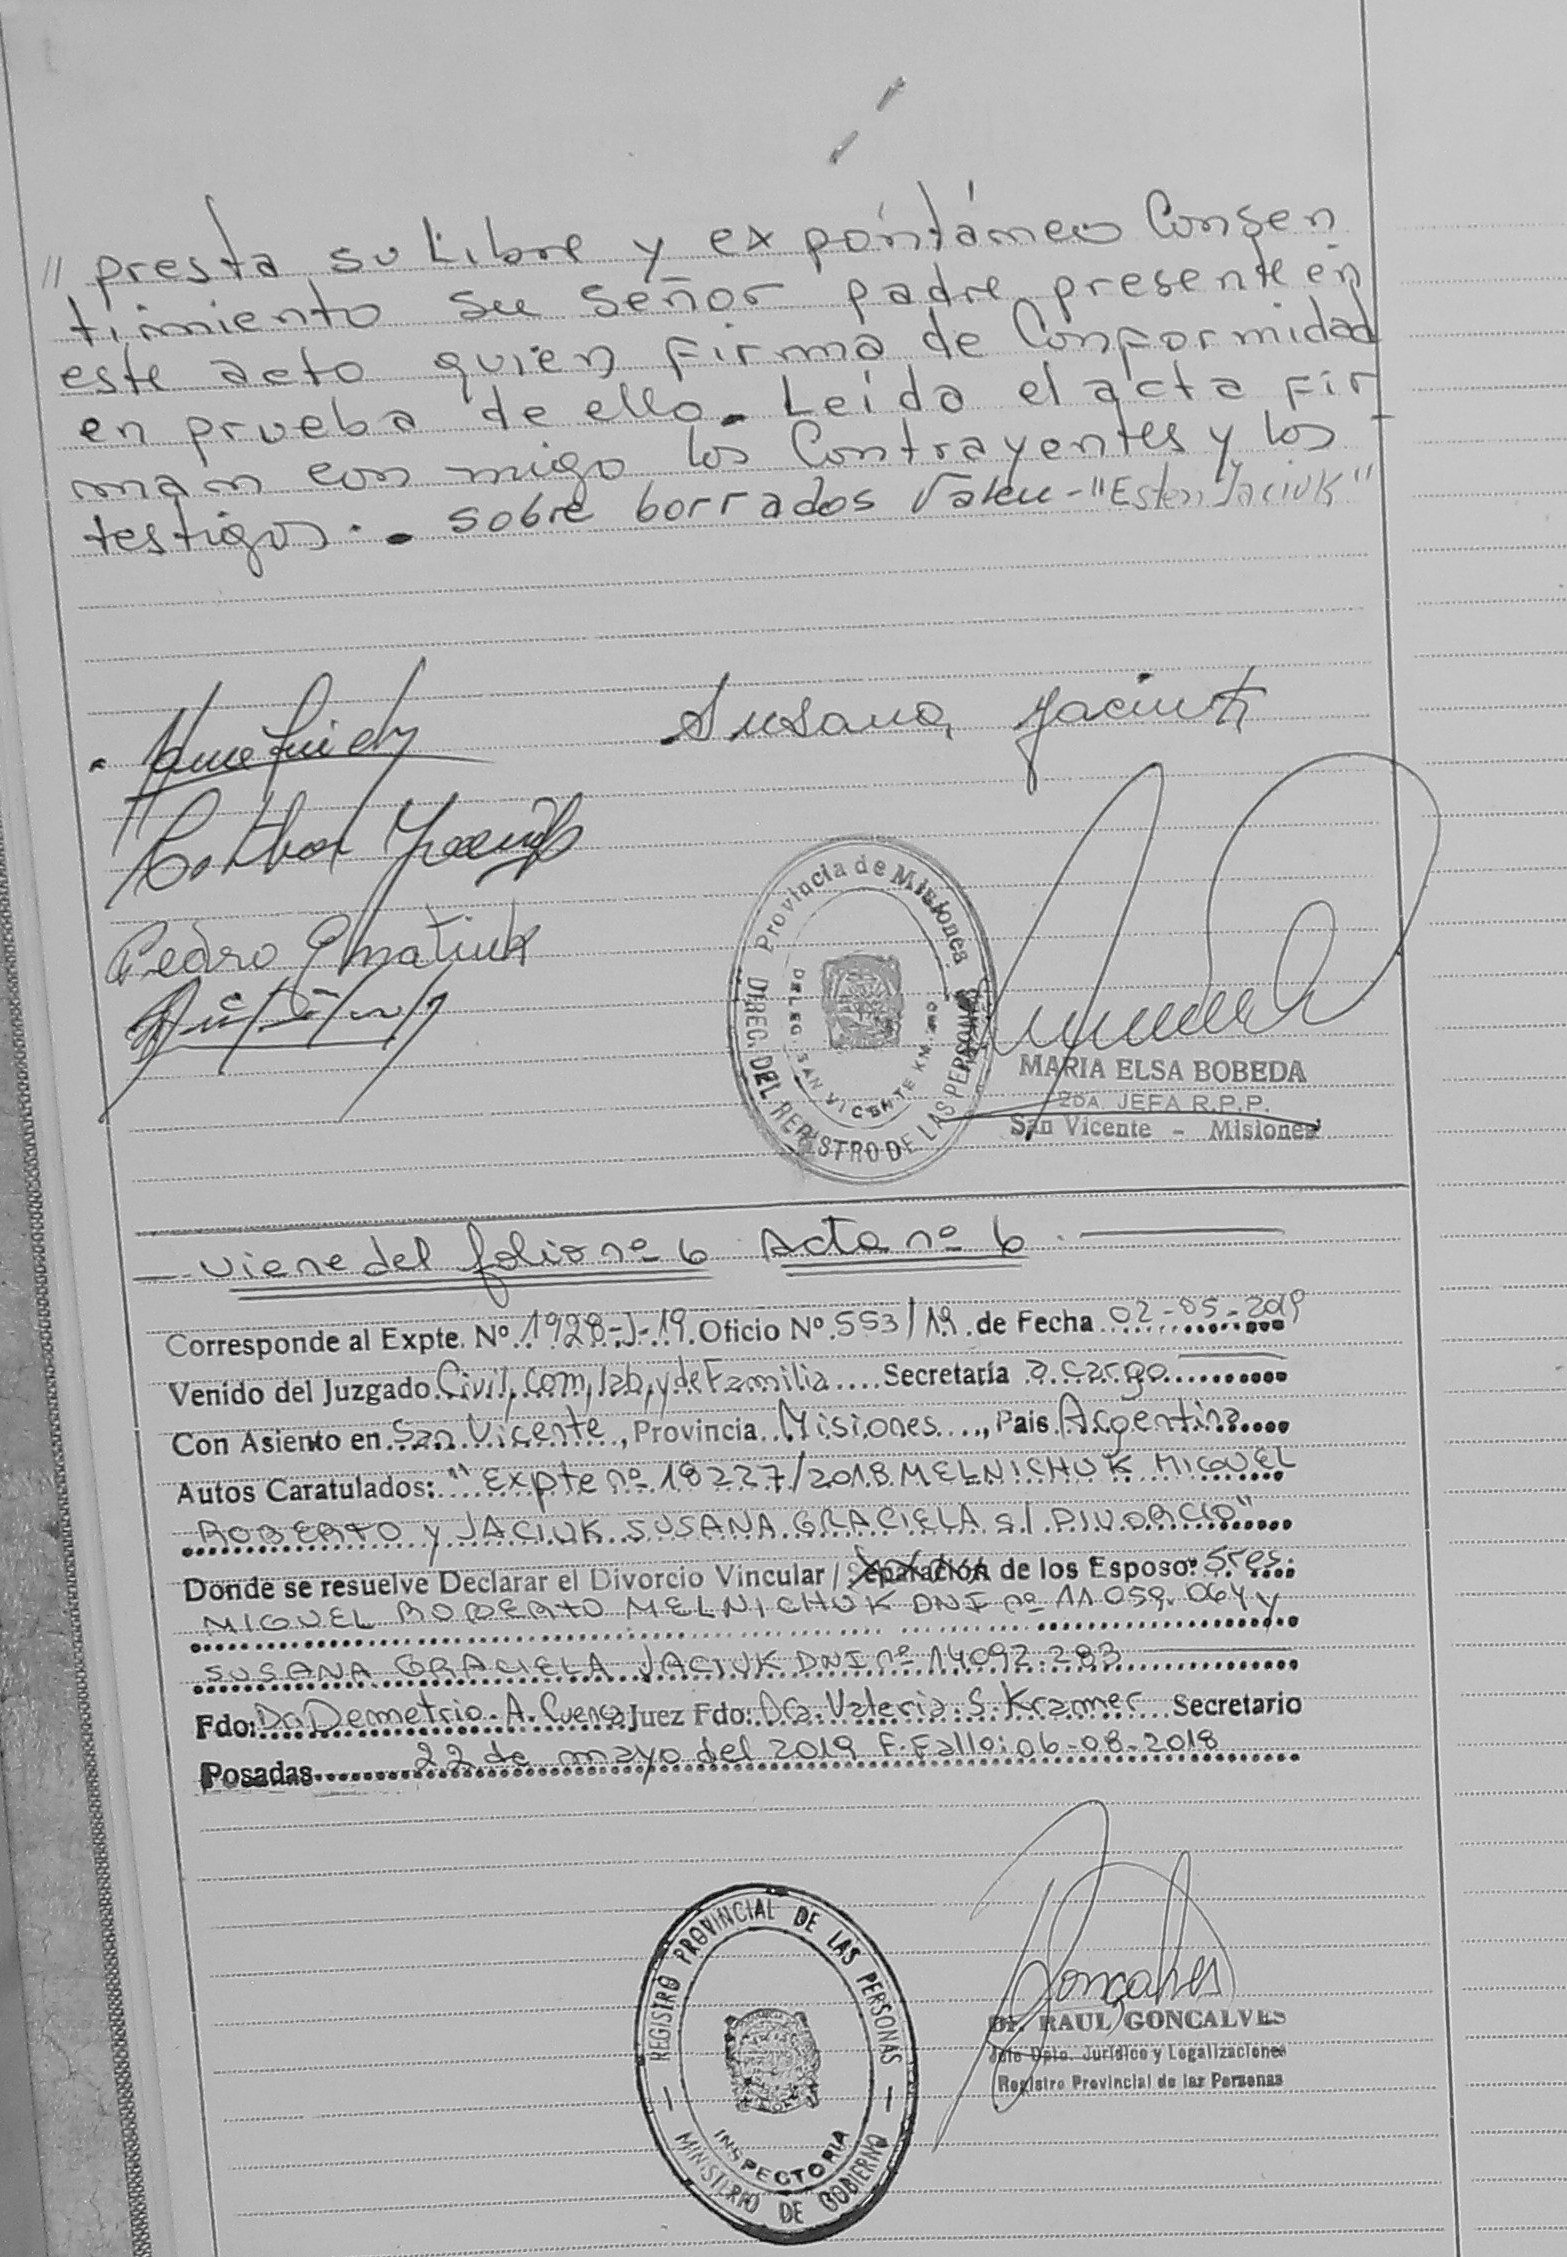 // presta su Libre y expóntáneo Consen
timiento su señor padre presente en
este acto quien firma de Conformidad
en prueba de ello. Leída el acta fir
man con migo los Contrayentes y los
testigos. - sobre borrados Valen - "Esten Jaciuk"
Susana Jaciuk
Pedro Ignatiuk
Provincia de Misiones
DIREC. DEL REGISTRO DE LAS PERSONAS
DELEG. SAN VICENTE KM.
MARIA ELSA BOBEDA
2DA. JEFA R.P.P.
San Vicente - Misiones
Viene del folio nº 6 Acta nº 6
Corresponde al Expte. Nº 1928-J-19 Oficio Nº 553/19 de Fecha 02-05-2019
Venido del Juzgado Civil, Com, lab, y de Familia Secretaría a cargo
Con Asiento en San Vicente, Provincia Misiones, Pais Argentina
Autos Caratulados: "Expte nº 18227/2018 MELNICHUK MIGUEL
ROBERTO y JACIUK SUSANA GRACIELA s/ DIVORCIO"
Donde se resuelve Declarar el Divorcio Vincular / Separación de los Esposo: Sres.
MIGUEL ROBERTO MELNICHUK DNI nº 11059.064 y
SUSANA GRACIELA JACIUK DNI nº 14092.283
Fdo: Dr Demetrio A. Cuenca Juez Fdo: Dra. Valeria S. Kramer Secretario
Posadas 22 de mayo del 2019 F. Fallo: 06-08-2018
REGISTRO PROVINCIAL DE LAS PERSONAS
INSPECTORIA
MINISTERIO DE GOBIERNO
Goncalves
Dr. RAUL GONCALVES
Jefe Dpto. Jurídico y Legalizaciones
Registro Provincial de las Personas